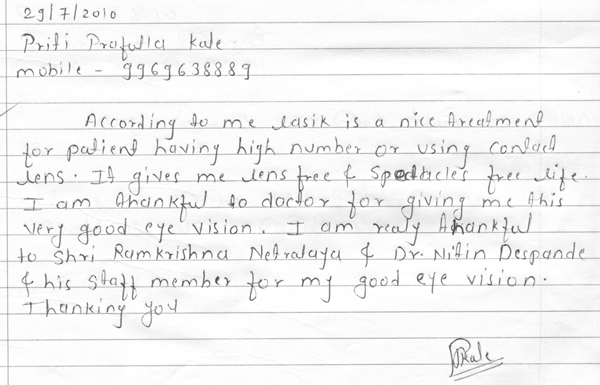 29/7/2010
Priti Prafulla Kale.
mobile - 9969638889
According to me lasik is a nice treatment
for patient having high number or using contact
lens. It gives me lens free & Spectacles free life.
I am thankful to doctor for giving me this
very good eye vision. I am realy thankful
to Shri Ramkrishna Netralaya & Dr. Nitin Despande
& his staff member for my good eye vision.
Thanking you
PKale